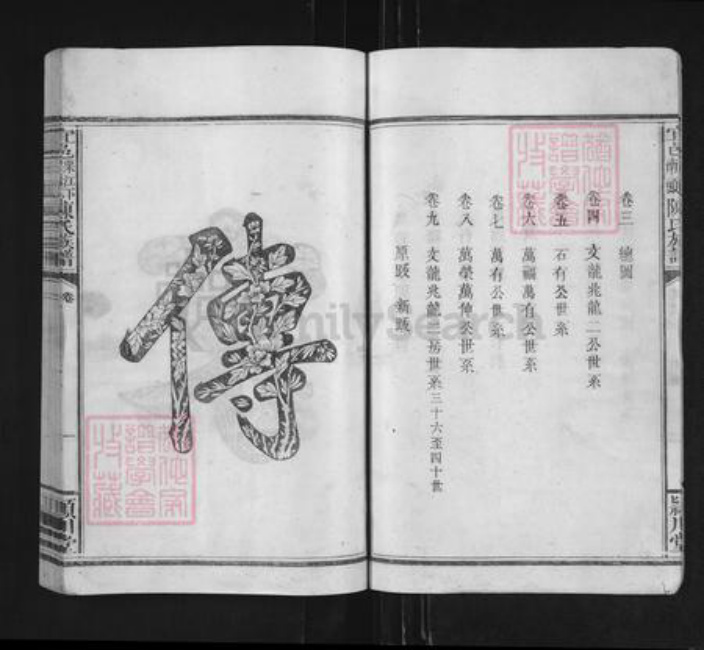 卷三 繪圖
卷四 文龍兆龍二公世系
卷五 石有公世系
卷六 萬福萬自公世系
卷七 萬有公世系
卷八 萬榮萬伸公世系
卷九 文龍兆龍二房世系三十六至四十世
原跋 新跋
傳
陳氏族譜
卷二
一
潁川堂
FamilySearch